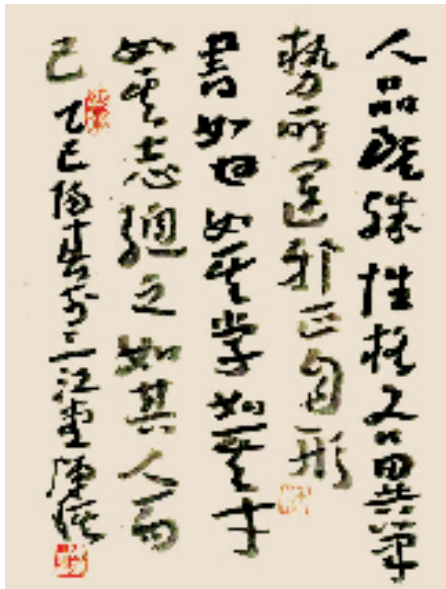 人品既殊性格各異筆
勢所運邪正自形
書如也如其學如其才
如其志總之如其人而
已 乙巳陽春於三江